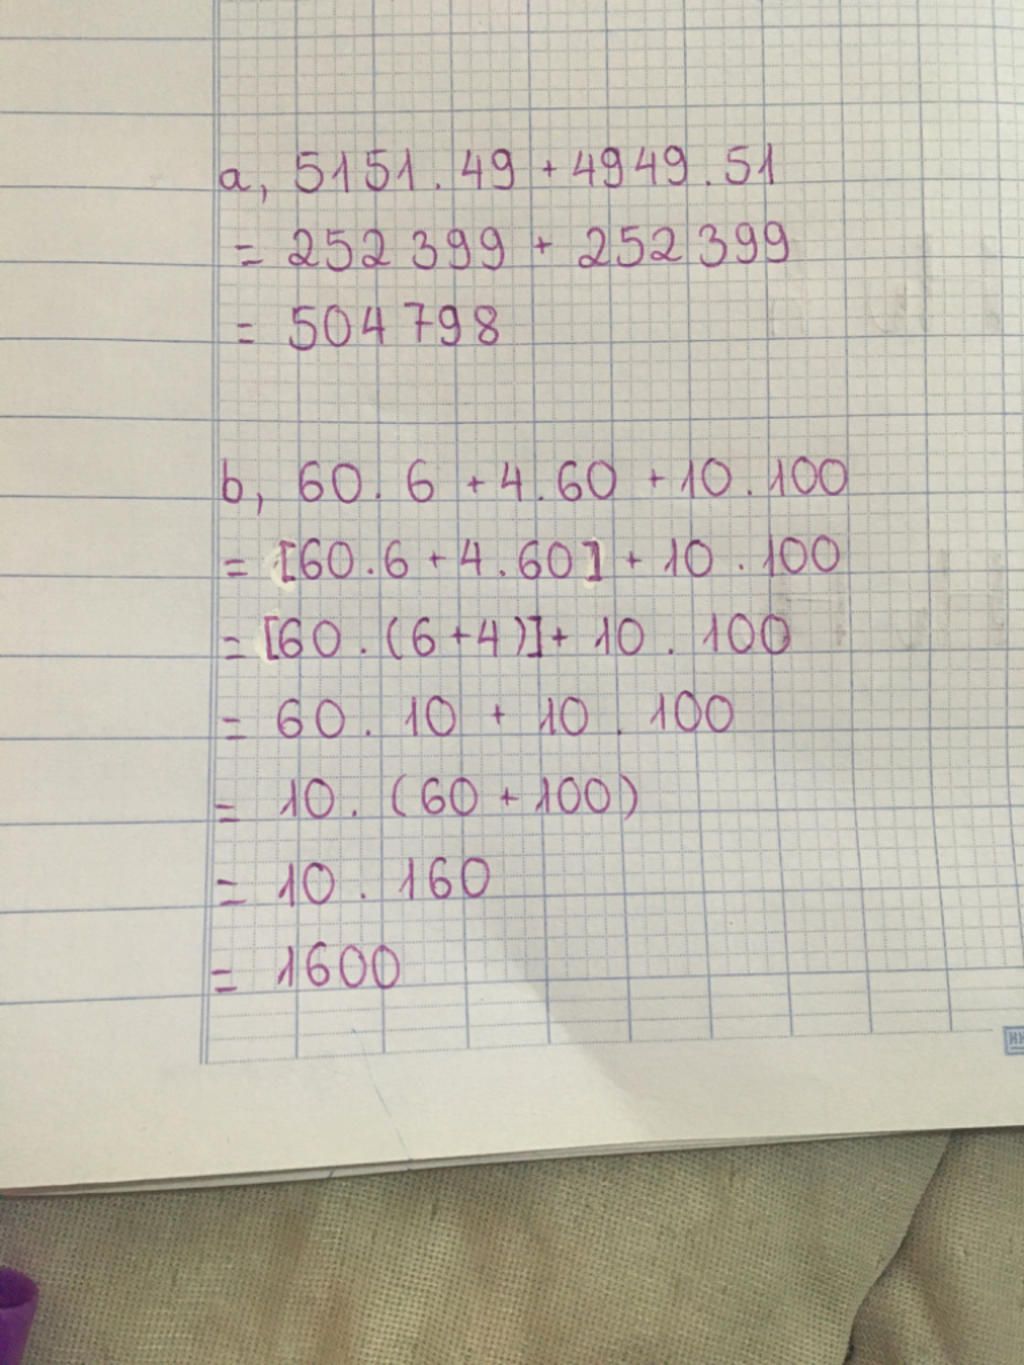 a, 5151.49 + 4949.51
= 252 399 + 252 399
= 504 798
b, 60.6 + 4.60 + 10.100
= [60.6 + 4.60] + 10.100
= [60.(6+4)] + 10.100
= 60.10 + 10.100
= 10.(60 + 100)
= 10.160
= 1600